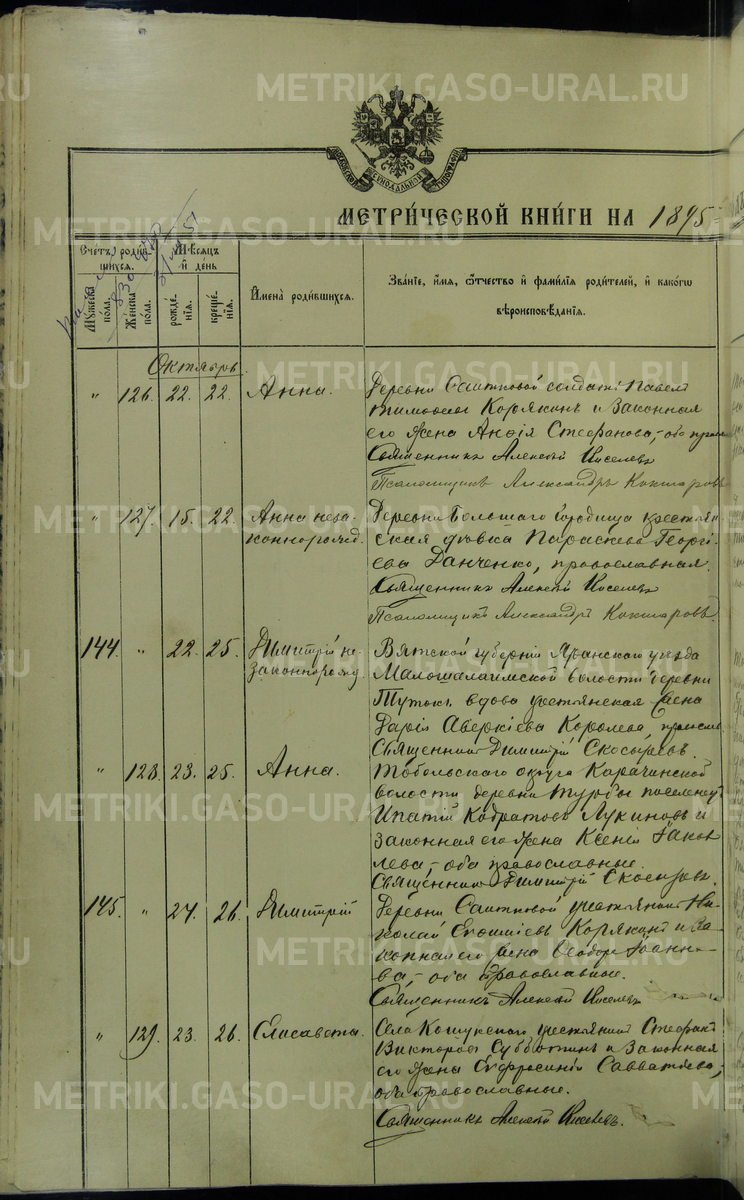 METRIKI.GASO-URAL.RU
МЕТРИ́ЧЕСКОЙ КНИ́ГИ НА 1895
Счетъ роди́вшихся.
Мѣсяцъ и҆ де́нь
И҆мена̀ роди́вшихся.
Зва́нїе, и҆́мя, ѻ҆́тчество и҆ фами́лїя роди́телей, и҆ како́гѡ вѣроисповѣ́данїя.
Му́жеска по́ла.
Же́нска по́ла.
рожде́нїя.
креще́нїя.
Октябрь.
" 126. 22. 22. Анна.
Деревни Саитковой солдатъ Павелъ
Тимофеевъ Корякинъ и законная
его жена Анфія Стефанова,
Священникъ Алексѣй Киселевъ
Псаломщикъ Александръ Кокшаровъ
" 127. 15. 22. Анна неза-
коннорожд.
Деревни Большаго Городища крестьян-
ская дѣвка Параскева Георгі-
ева Данченко, православная.
Священникъ Алексѣй Киселевъ
Псаломщикъ Александръ Кокшаровъ
144. " 22. 25. Димитрій не-
законнорожд.
Вятской губерніи Яранскаго уѣзда
волости деревни
вдова крестьянская жена
Дарія Аверкіева Королева,
Священникъ Димитрій Скосыревъ.
" 128. 23. 25. Анна.
Тобольскаго округа Карачинской
волости деревни Турбы поселенецъ
Ипатій Кодратовъ Лукиновъ и
законная его жена Ксенія Іаков-
лева, оба православные.
Священникъ Димитрій Скосыревъ.
145. " 24. 26. Димитрій
Деревни Саитковой крестьянинъ Ни-
колай Корякинъ и за-
конная его жена Ѳеодора Іоанно-
ва, оба православные.
Священникъ Алексѣй Киселевъ
" 129. 23. 26. Елисавета.
Села Кошукскаго крестьянинъ Стефанъ
Викторовъ Субботинъ и законная
его жена Евфросинія Савватіева,
оба православные.
Священникъ Алексѣй Киселевъ.